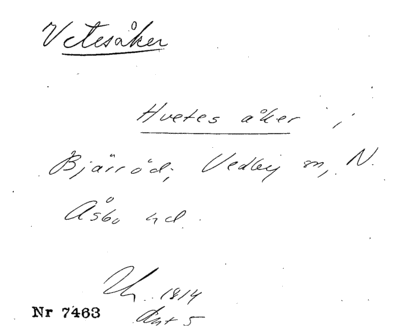 Vetesåker
Hvetes åker i
Bjärröd, Vedby sn, N.
Åsbo hd.
1814
Akt 5
Nr 7463